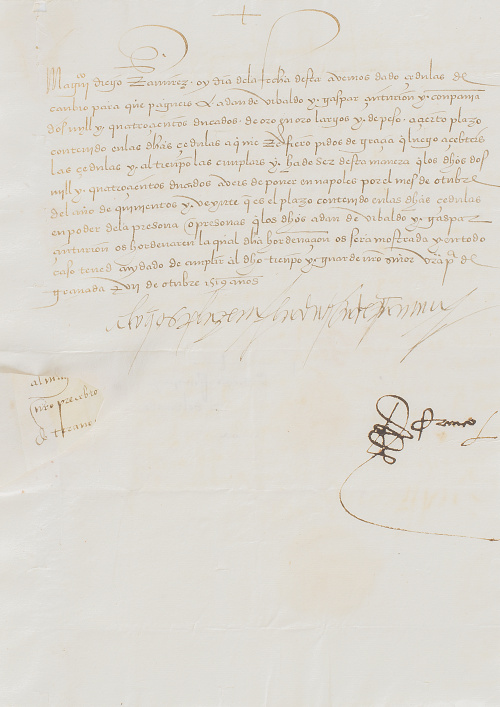 Magco diego Ramirez. oy dia dela fecha desta avemos dado çedulas de
canbio para que pagueis a adan de vibaldo y. gaspar çenturion y. conpania
dos mill y. quatroçientos ducados. de oro en oro largos y. de peso. a çierto plazo
contenido enlas dhas çedulas a q me Refiero pidos de graçia q luego açebteis
las çedulas y. al tienpo las cunplais y. ha de ser desta manera q los dhos dos
mill y. quatroçientos ducados aveis de poner en napoles por el mes de otubre
del año de quinientos y. veynte q es el plazo contenido enlas dhas çedulas
en poder dela presona o presonas q los dhos adan de vibaldo y. gaspar
çenturion os hordenaren la qual dha hordenaçion os sera mostrada y en todo
caso tened cuydado de cunplir al dho tienpo y. guarde nro señor vra pa de
granada XVII de otubre 1519 años